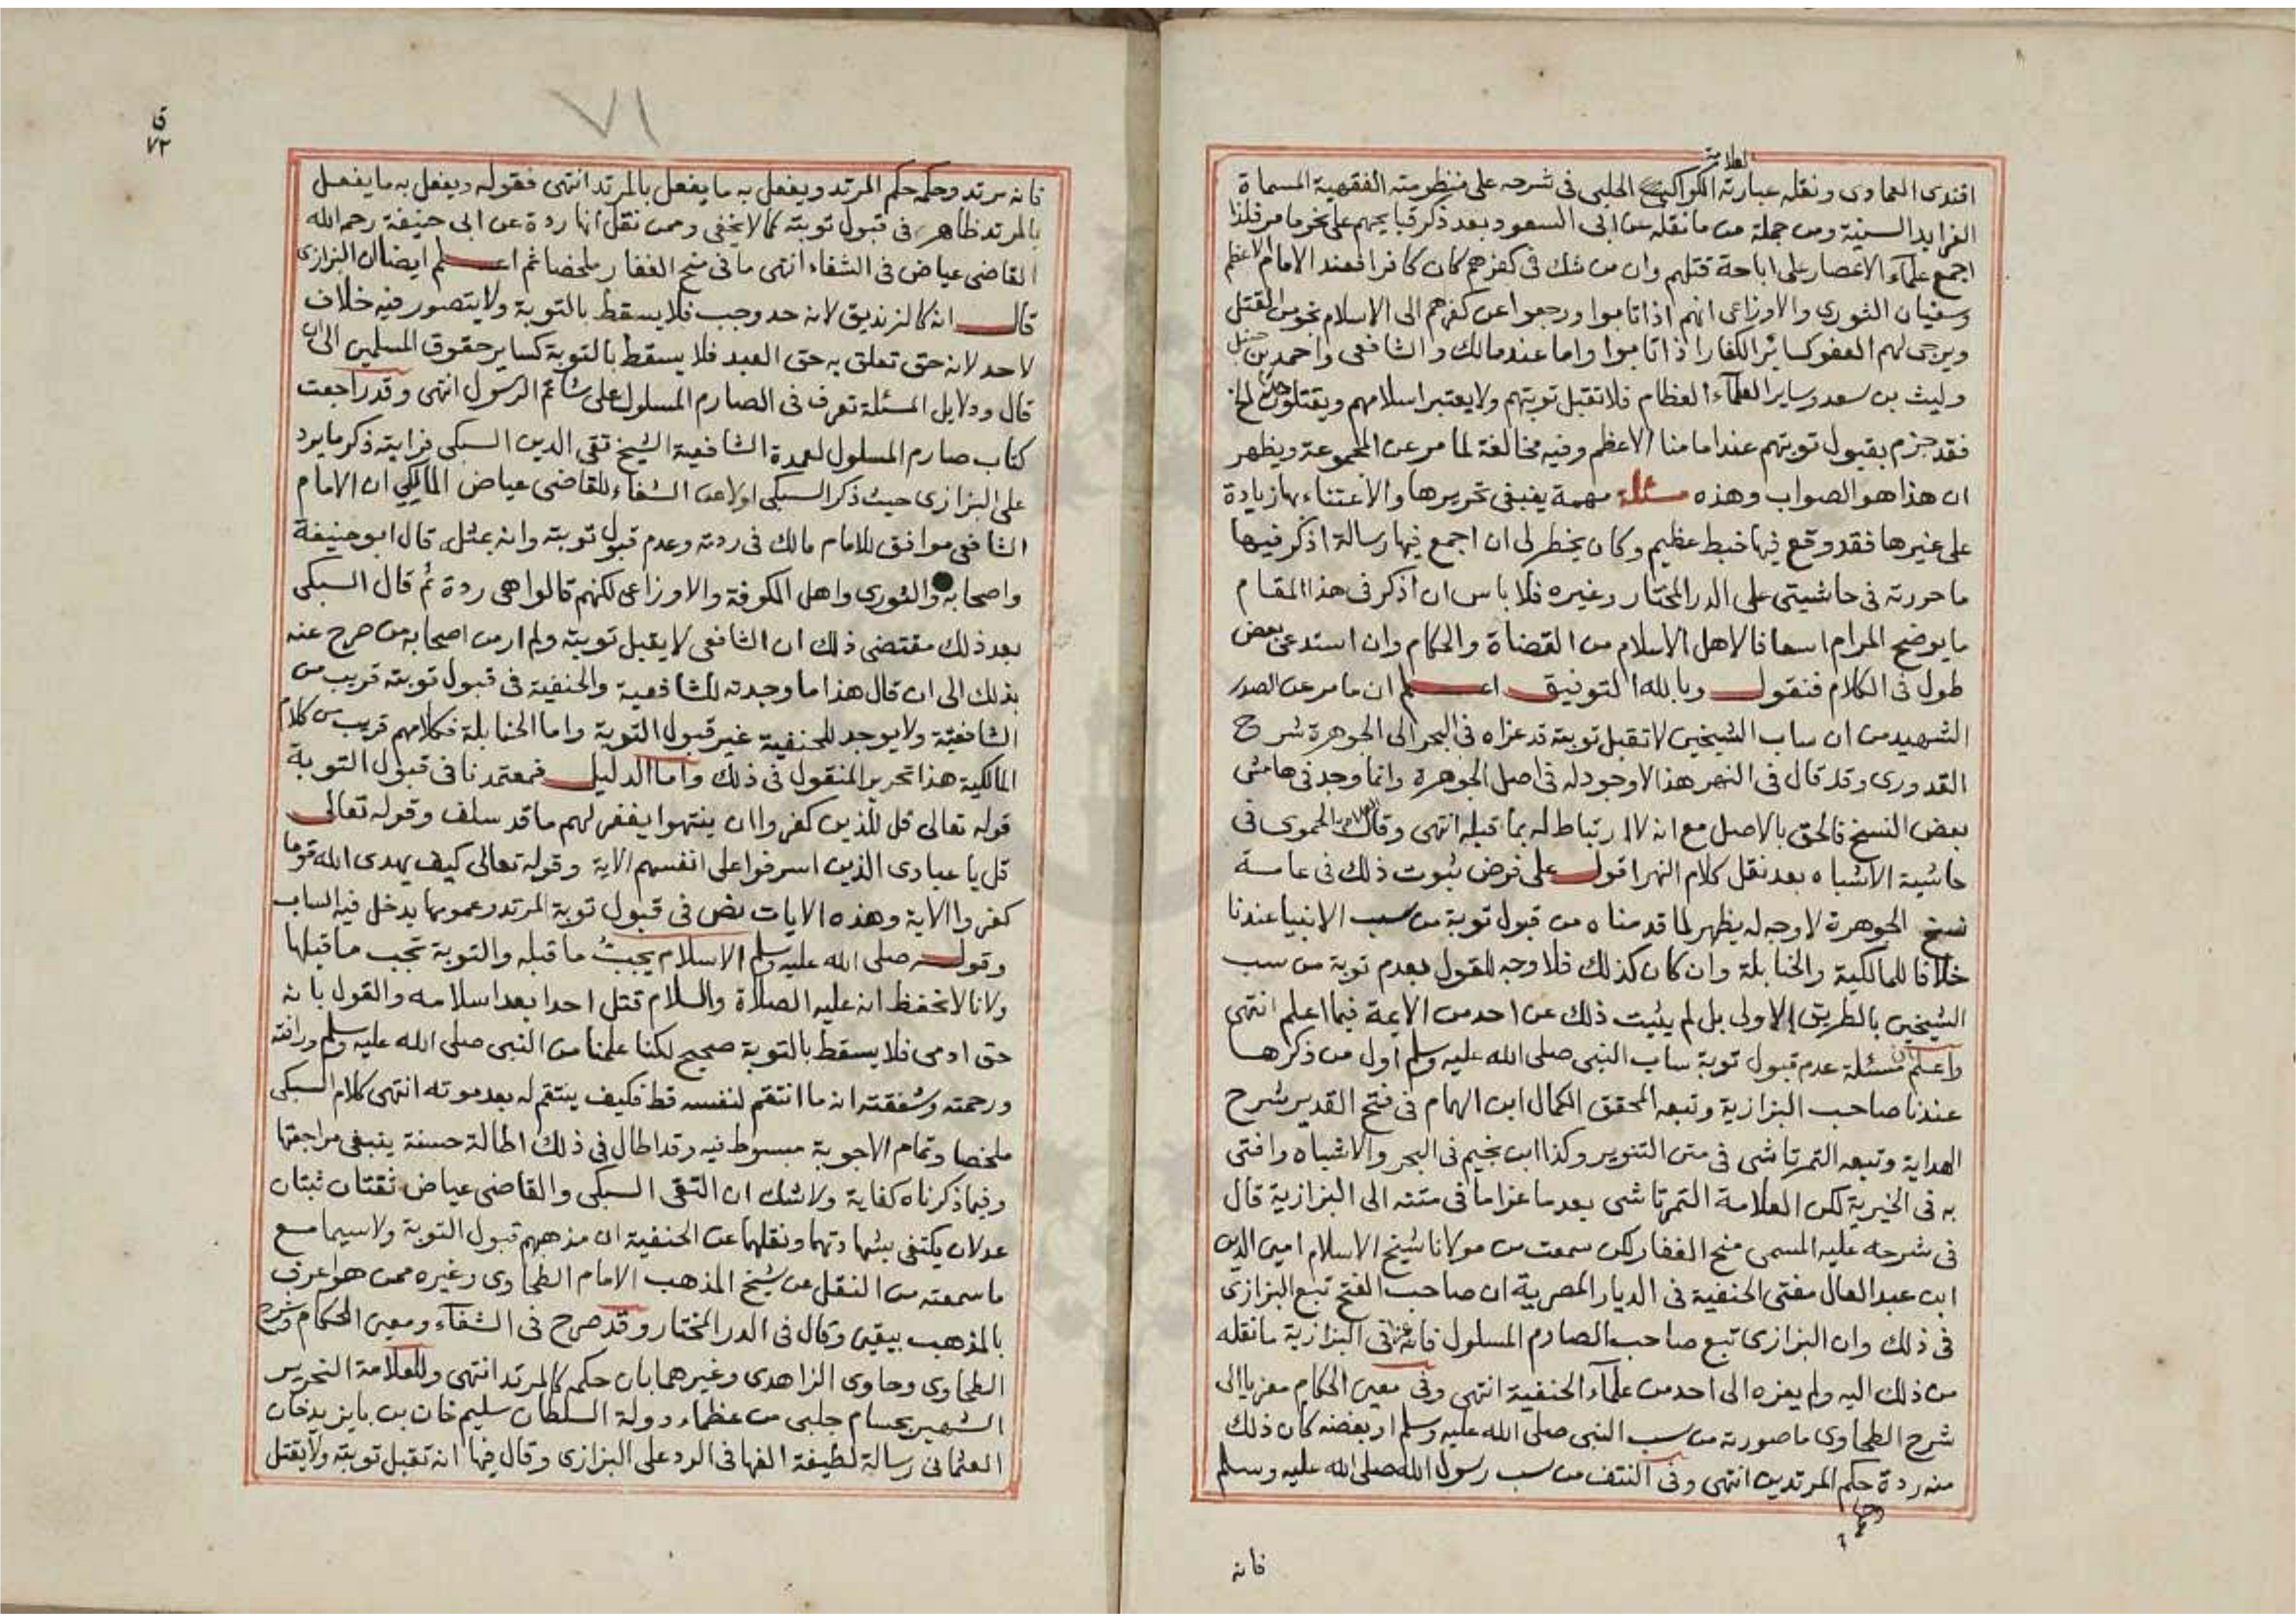 العلامة
افندى العمادى ونقله عبارته الكواكبى الحلبى فى شرحه على منظومته الفقهية المسماة
الفرايد السنية ومن جملة من مانقله عن ابى السعود بعد ذكر قبايحهم على نحو ما مر فلذا
اجمع علمآء الاعصار على اباحة قتلهم وان من شك فى كفرهم كان كافرا فعند الامام الاعظم
وسفيان الثورى والاوزاعى انهم اذا تابوا ورجعوا عن كفرهم الى الاسلام نجوا من القتل
ويرجى لهم العفو كسائر الكفار اذا تابوا واما عند مالك والشافعى واحمد بن حنبل
وليث بن سعد وساير العلمآء العظام فلا تقبل توبتهم ولا يعتبر اسلامهم ويقتلون حدا الخ
فقد جزم بقبول توبتهم عند امامنا الاعظم وفيه مخالفة لما مر عن المجموعة ويظهر
ان هذا هو الصواب وهذه مسئلة مهمة ينبغى تحريرها والاعتناء بها زيادة
على غيرها فقد وقع فيها خبط عظيم وكان يخطر لى ان اجمع فيها رسالة اذكر فيها
ما حررته فى حاشيتى على الدر المختار وغيره فلا باس ان اذكر فى هذا المقام
ما يوضح المرام اسعافا لاهل الاسلام من القضاة والحكام وان استدعى بعض
طول فى الكلام فنقول وبالله التوفيق اعلم ان ما مر عن الصدر
الشهيد من ان ساب الشيخين لا تقبل توبته قد عزاه فى البحر الى الجوهرة شرح
القدورى وقد قال فى النهر هذا لا وجود له فى اصل الجوهرة وانما وجد فى هامش
بعض النسخ فالحق بالاصل مع انه لا ارتباط له بما قبله انتهى وقال العلامة الحموى فى
حاشية الاشباه بعد نقل كلام النهر اقول على فرض ثبوت ذلك فى عامة
نسخ الجوهرة لا وجه له يظهر لما قدمناه من قبول توبة من سب الانبيا عندنا
خلافا للمالكية والحنابلة وان كان كذلك فلا وجه للقول بعدم توبة من سب
الشيخين بالطريق الاولى بل لم يثبت ذلك عن احد من الايمة فيما اعلم انتهى
واعلم ان مسئلة عدم قبول توبة ساب النبى صلى الله عليه وسلم اول من ذكرها
عندنا صاحب البزازية وتبعه المحقق الكمال ابن الهمام فى فتح القدير شرح
الهداية وتبعه التمرتاشى فى متن التنوير وكذا ابن نجيم فى البحر والاشباه وافتى
به فى الخيرية لكن العلامة التمرتاشى بعد ما عزا ما فى متنه الى البزازية قال
فى شرحه عليه المسمى منح الغفار لكن سمعت من مولانا شيخ الاسلام امين الدين
ابن عبد العال مفتى الحنفية فى الديار المصرية ان صاحب الفتح تبع البزازى
فى ذلك وان البزازى تبع صاحب الصارم المسلول فانه عزا فى البزازية ما نقله
من ذلك اليه ولم يعزه الى احد من علمآء الحنفية انتهى وفى معين الحكام معزيا الى
شرح الطحاوى ما صورته من سب النبى صلى الله عليه وسلم او بغضه كان ذلك
منه ردة حكم المرتدين انتهى وفى النتف من سب رسول الله صلى الله عليه وسلم
وحكمه
فانه
٧١
ق
٧٢
فانه مرتد وحكمه حكم المرتد ويفعل به ما يفعل بالمرتد انتهى فقوله ويفعل به ما يفعل
بالمرتد ظاهر فى قبول توبته كما لا يخفى وممن نقل انها ردة عن ابى حنيفة رحمه الله
القاضى عياض فى الشفاء انتهى ما فى منح الغفار ملخصا ثم اعلم ايضا ان البزازى
قال انه كالزنديق لانه حد وجب فلا يسقط بالتوبة ولا يتصور فيه خلاف
لاحد لانه حق تعلق به حق العبد فلا يسقط بالتوبة كساير حقوق المسلمين الى ان
قال ودلايل المسئلة تعرف فى الصارم المسلول على شاتم الرسول انتهى وقد راجعت
كتاب صارم المسلول لعمدة الشافعية الشيخ تقى الدين السبكى فرايته ذكر ما يرد
على البزازى حيث ذكر السبكى اولا عن الشفاء للقاضى عياض المالكي ان الامام
الشافعى موافق للامام مالك فى ردته وعدم قبول توبته وانه بمثله قال ابو حنيفة
واصحابه والثورى واهل الكوفة والاوزاعى لكنهم قالوا هى ردة ثم قال السبكى
بعد ذلك مقتضى ذلك ان الشافعى لا يقبل توبته ولم ار من اصحابه من صرح عنه
بذلك الى ان قال هذا ما وجدته للشافعية والحنفية فى قبول توبته قريب من
الشافعية ولا يوجد للحنفية غير قبول التوبة واما الحنابلة فكلامهم قريب من كلام
المالكية هذا تحرير المنقول فى ذلك واما الدليل فمعتمدنا فى قبول التوبة
قوله تعالى قل للذين كفروا ان ينتهوا يغفر لهم ما قد سلف وقوله تعالى
قل يا عبادى الذين اسرفوا على انفسهم الاية وقوله تعالى كيف يهدى الله قوما
كفروا الاية وهذه الايات نص فى قبول توبة المرتد وعمومها يدخل فيه الساب
وقوله صلى الله عليه وسلم الاسلام يجب ما قبله والتوبة تجب ما قبلها
ولانا لا نحفظ انه عليه الصلاة والسلام قتل احدا بعد اسلامه والقول بانه
حق ادمى فلا يسقط بالتوبة صحيح لكنا علمنا من النبى صلى الله عليه وسلم ورافته
ورحمته وشفقته انه ما انتقم لنفسه قط فكيف ينتقم له بعد موته انتهى كلام السبكى
ملخصا وتمام الاجوبة مبسوط فيه وقد اطال فى ذلك اطالة حسنة ينبغى مراجعتها
وفيما ذكرناه كفاية ولا شك ان التقى السبكى والقاضى عياض ثقتان ثبتان
عدلان يكتفى بشهادتهما ونقلهما عن الحنفية ان مذهبهم قبول التوبة ولا سيما مع
ما سمعته من النقل عن شيخ المذهب الامام الطحاوى وغيره ممن هو اعرف
بالمذهب بيقين وقال فى الدر المختار وقد صرح فى الشفآء ومعين الحكام وشرح
الطحاوى وحاوى الزاهدى وغيرهما بان حكمه كالمرتد انتهى وللعلامة النحرير
الشهير بحسام جلبى من عظماء دولة السلطان سليم خان بن بايزيد خان
العثمانى رسالة لطيفة الفها فى الرد على البزازى وقال فيها انه تقبل توبته ولا يقتل